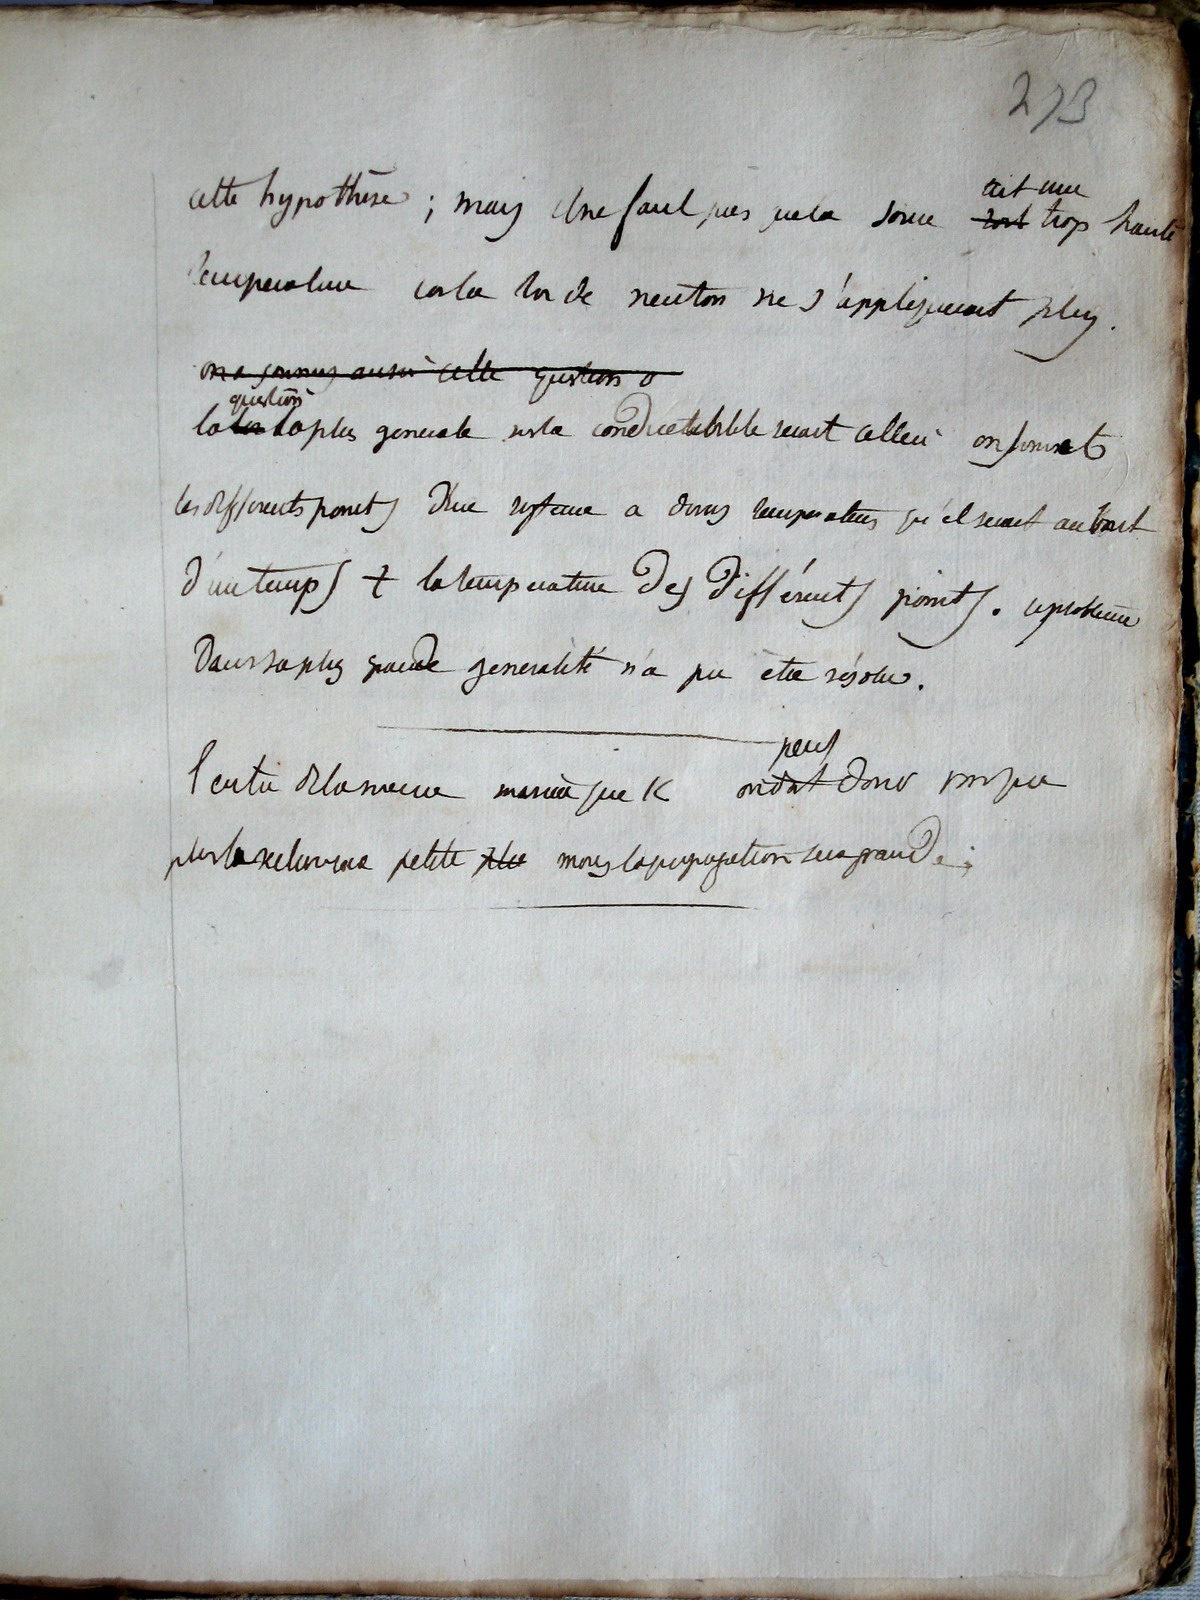 273
cette hypothèse ; mais il ne faut pas que la source ait une trop haute
temperature car la loi de neuton ne s'appliqueroit plus.
on a soumis aussi cette question
question
la la plus generale sur la conductibilité seroit celle où on
les differents points d'une systeme a temperatures qu'el seroit au bout
d'un temps t la temperature des différents points. ce problème
Dans sa plus grande generalité n'a pu être résolu.
peut
de la meme maniè que K on doit donc
plus la petite plus moins la propagation sera grande ;